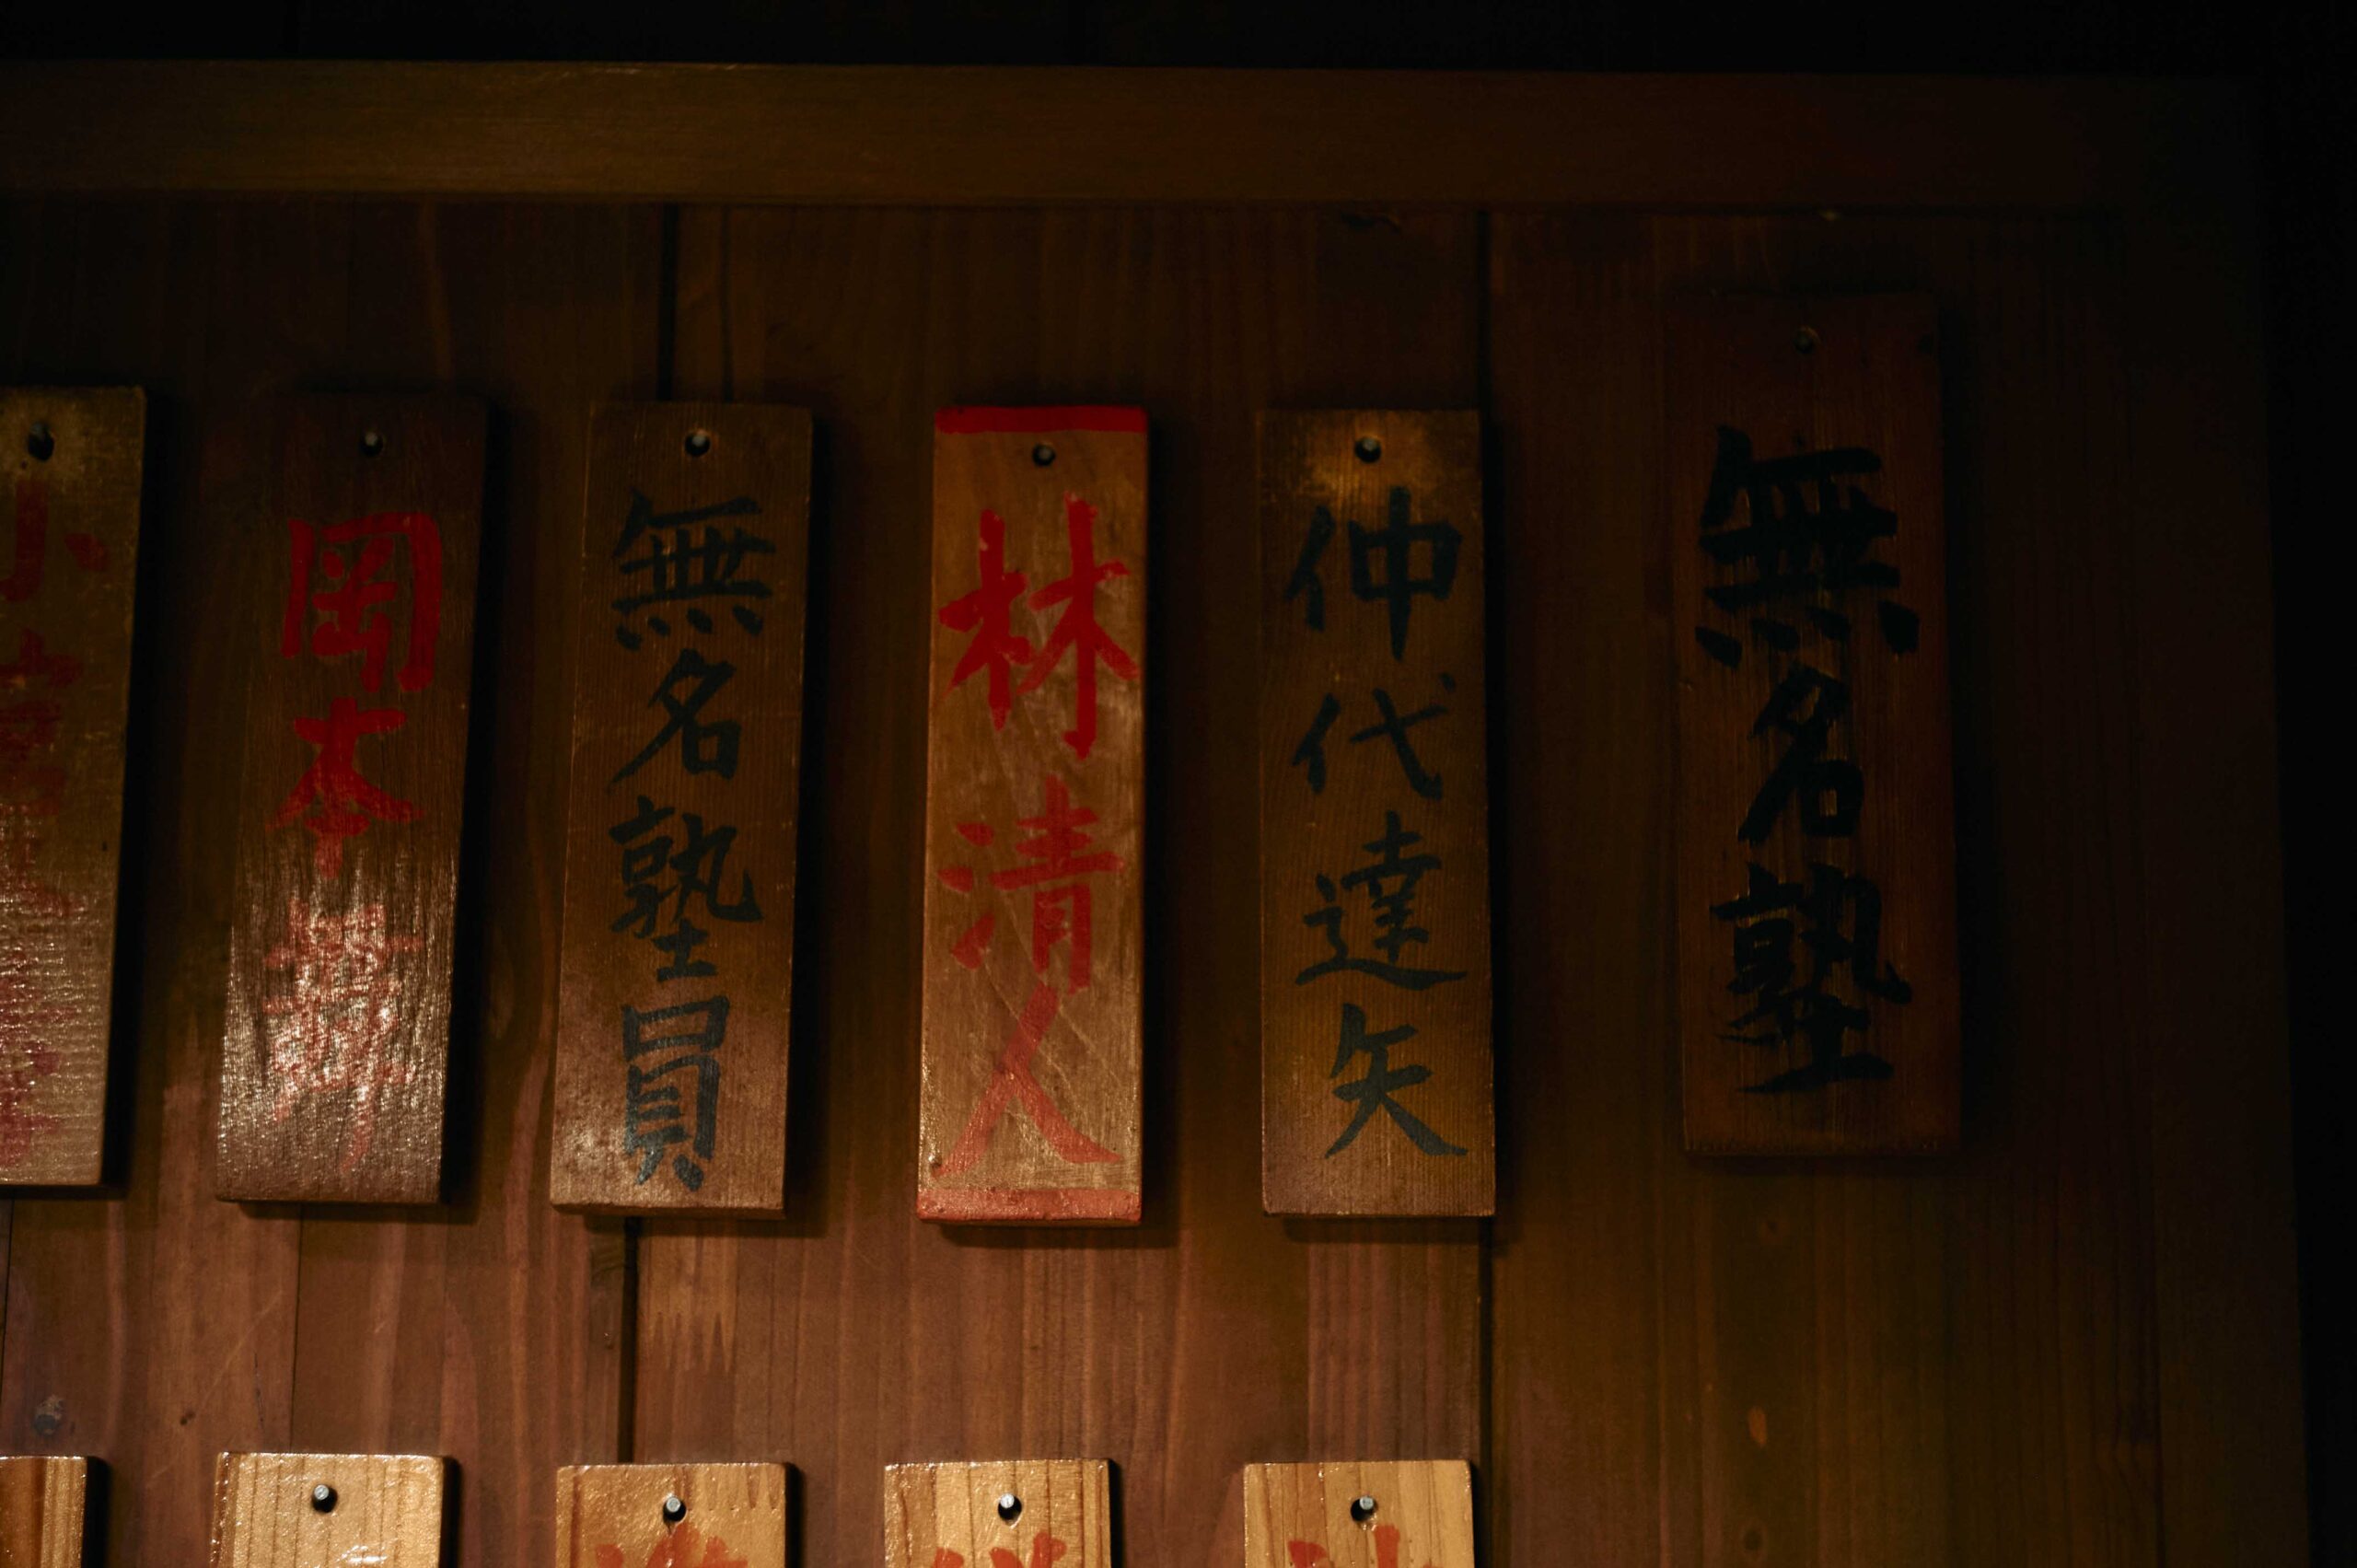 無名塾
仲代達矢
林清人
無名塾員
岡本舞